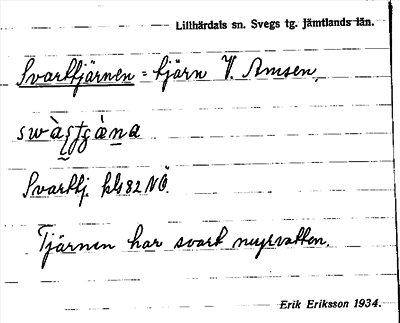 Lillhärdals sn. Svegs tg. jämtlands län.
Svarttjärnen = tjärn V. Amsen.
Svarttj. kbl 82 NÖ.
Tjärnen har svart myrvatten.
Erik Eriksson 1934.